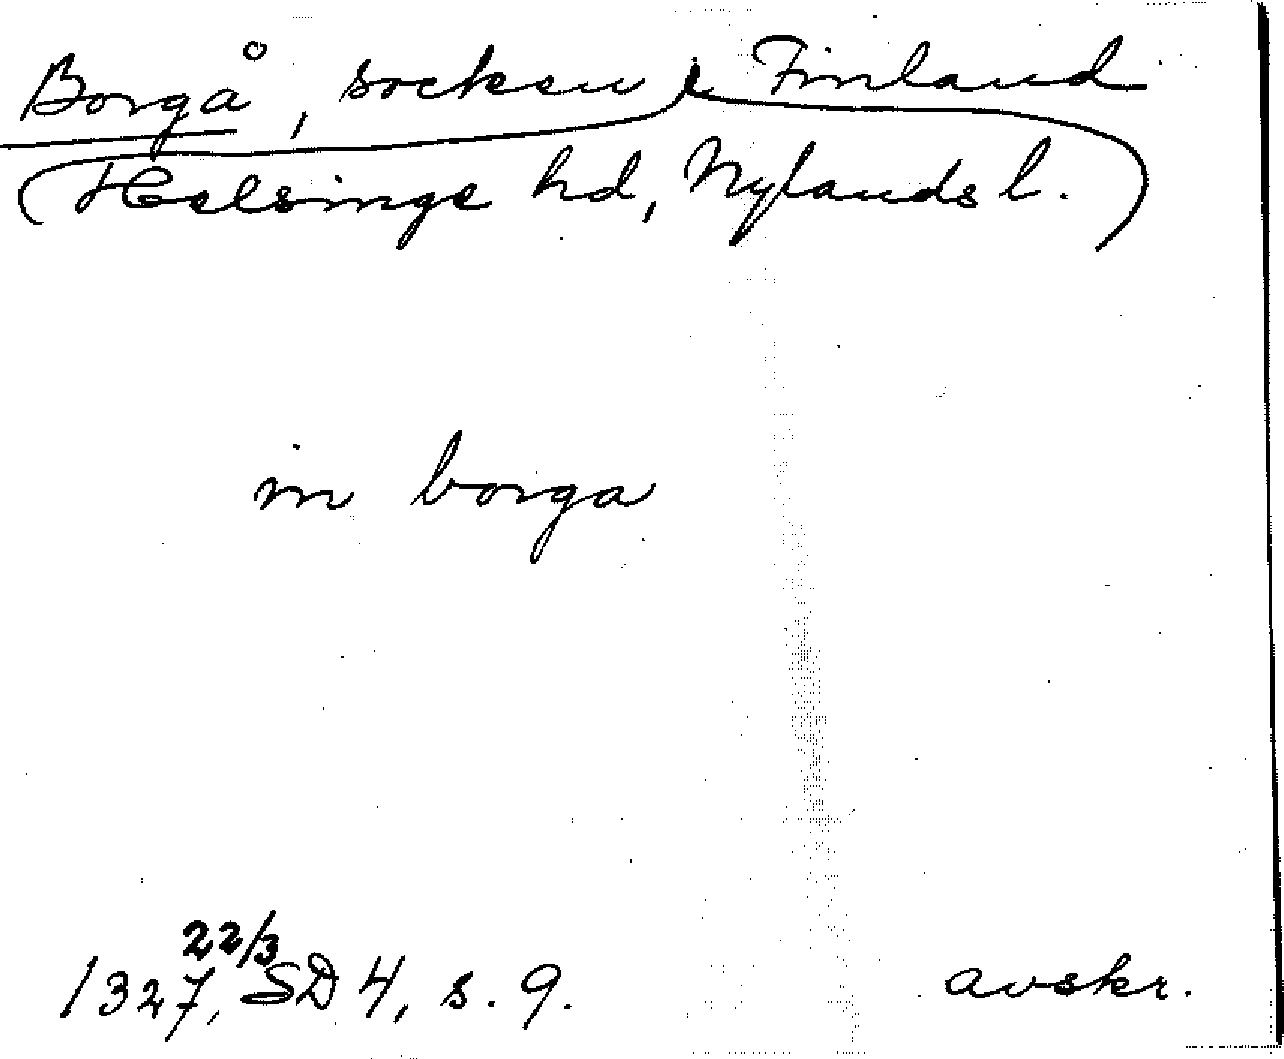 Borgå, socken, Finland
(Helsinge hd, Nylands l.)
in borga
22/3
1327, SD 4, s. 9.
avskr.